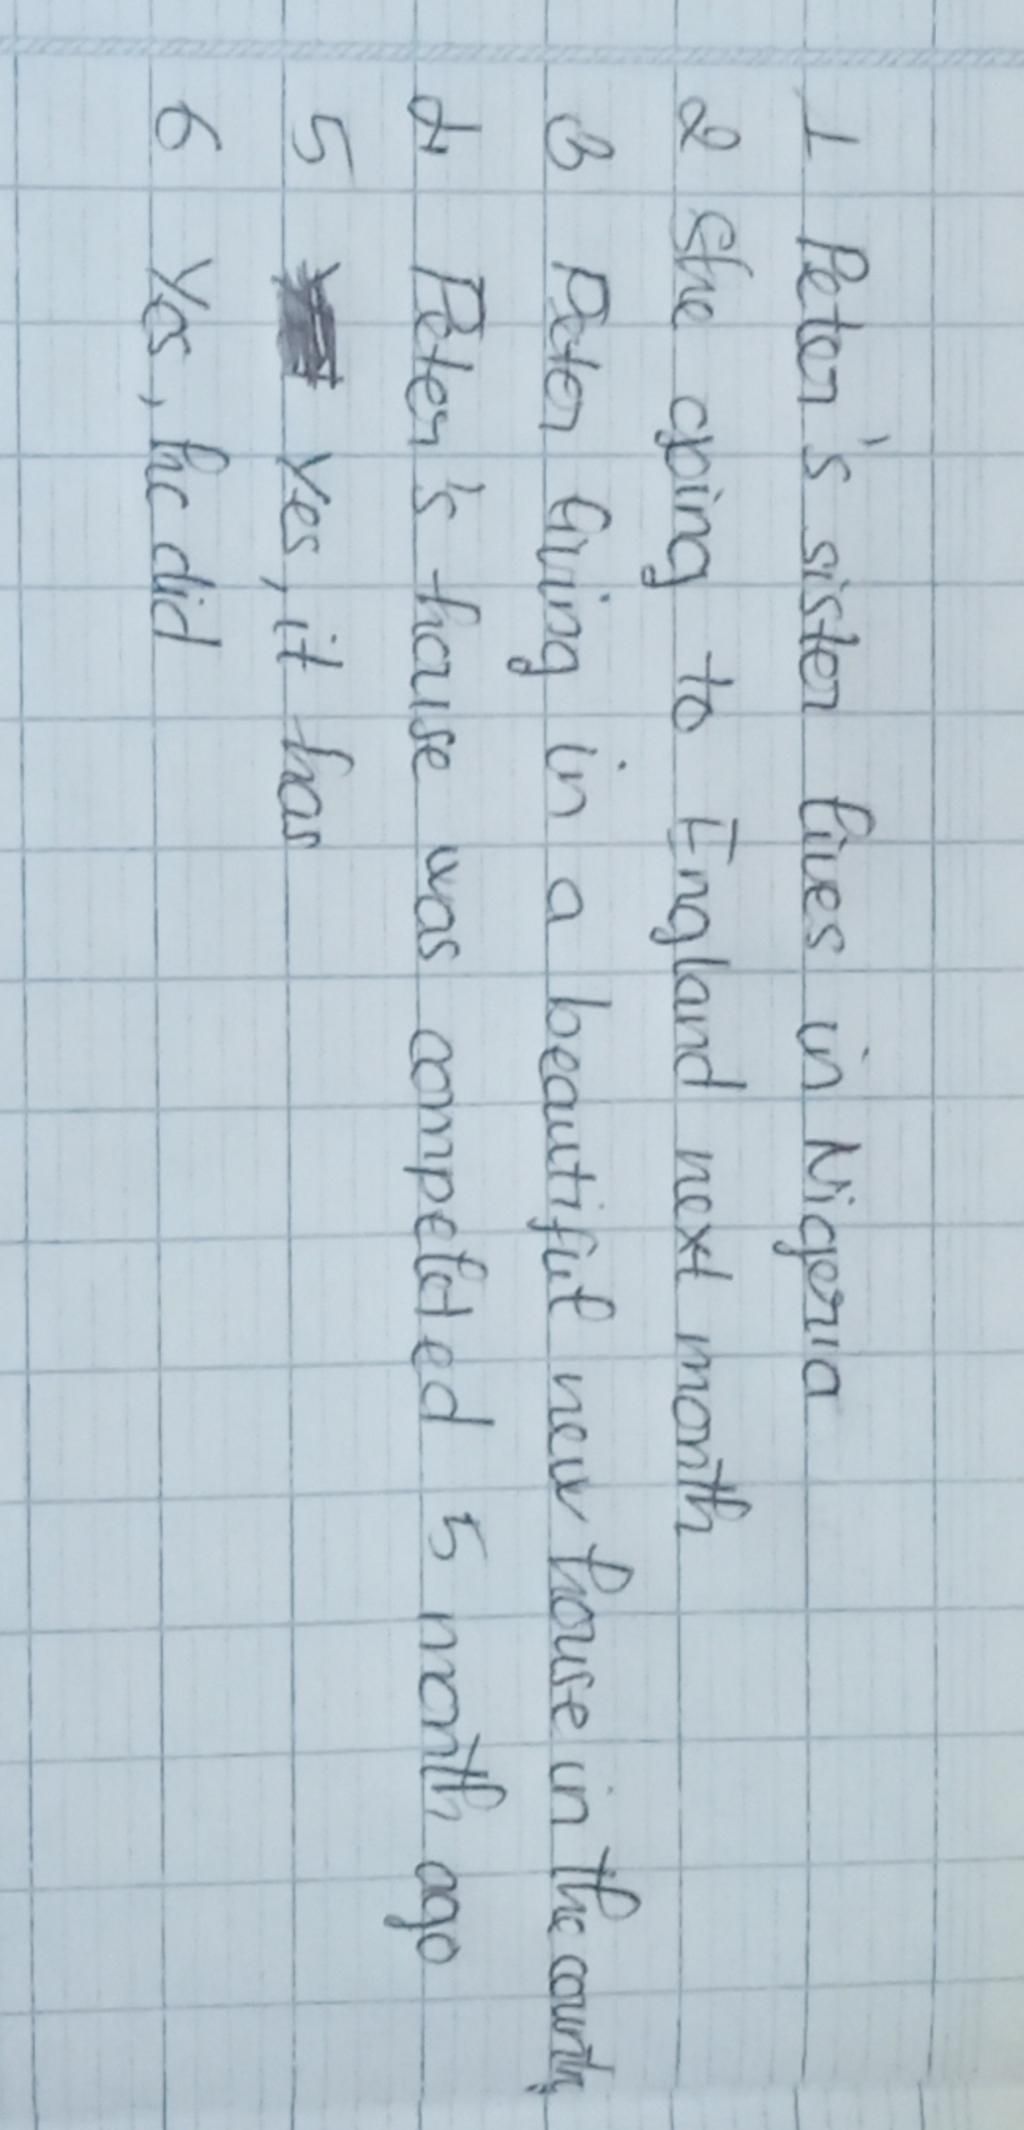 1 Peter's sister lives in Nigeria
2 She going to England next month
3 Peter living in a beautiful new house in the country
4 Peter's house was compeleted 5 month ago
5 Yes, it has
6 Yes, he did